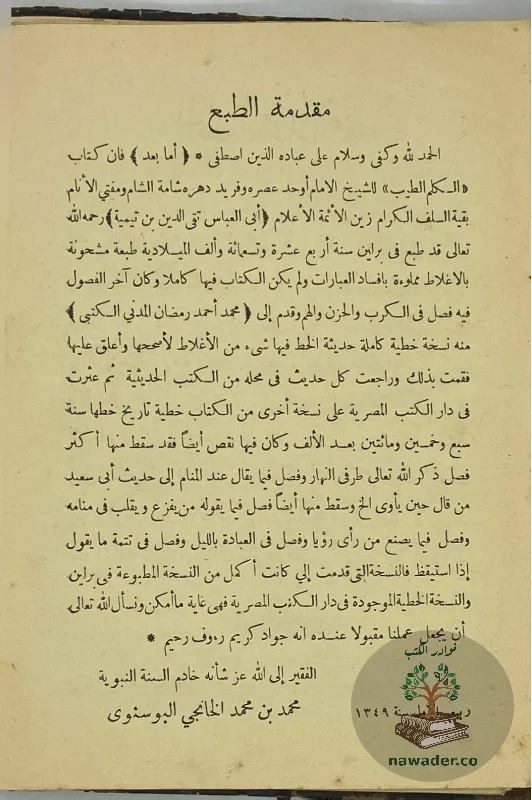 مقدمة الطبع
الحمد لله وكفى وسلام على عباده الذين اصطفى * ﴿ أما بعد ﴾ فان كتاب
«الكلم الطيب» للشيخ الامام أوحد عصره وفريد دهره شامة الشام ومفتي الأنام
بقية السلف الكرام زين الأئمة الأعلام ﴿أبى العباس تقى الدين بن تيمية﴾ رحمه الله
تعالى قد طبع فى براين سنة أربع عشرة وتسعمائة وألف الميلادية طبعة مشحونة
بالاغلاط مملوءة بافساد العبارات ولم يكن الكتاب فيها كاملا وكان آخر الفصول
فيه فصل فى الكرب والحزن والهم وقدم إلى ﴿ محمد أحمد رمضان المدني الكتبى ﴾
منه نسخة خطية كاملة حديثة الخط فيها شىء من الأغلاط لأصححها وأعلق عليها
فقمت بذلك وراجعت كل حديث فى محله من الكتب الحديثية ثم عثرت
فى دار الكتب المصرية على نسخة أخرى من الكتاب خطية تاريخ خطها سنة
سبع وخمسين ومائتين بعد الألف وكان فيها نقص أيضاً فقد سقط منها أكثر
فصل ذكر الله تعالى طرفى النهار وفصل فيما يقال عند المنام إلى حديث أبى سعيد
من قال حين يأوى الخ وسقط منها أيضاً فصل فيما يقوله من يفزع ويقلب فى منامه
وفصل فيما يصنع من رأى رؤيا وفصل فى العبادة بالليل وفصل فى تتمة ما يقول
إذا استيقظ فالنسخة التى قدمت إلي كانت أكمل من النسخة المطبوعة فى براين
والنسخة الخطية الموجودة فى دار الكتب المصرية فهى غاية ما أمكن ونسأل الله تعالى
أن يجعل عملنا مقبولا عنده انه جواد كريم رءوف رحيم *
الفقير إلى الله عز شأنه خادم السنة النبوية
محمد بن محمد الخانجي البوسنوى
سنة ١٣٤٩
نوادر الكتب
nawader.co